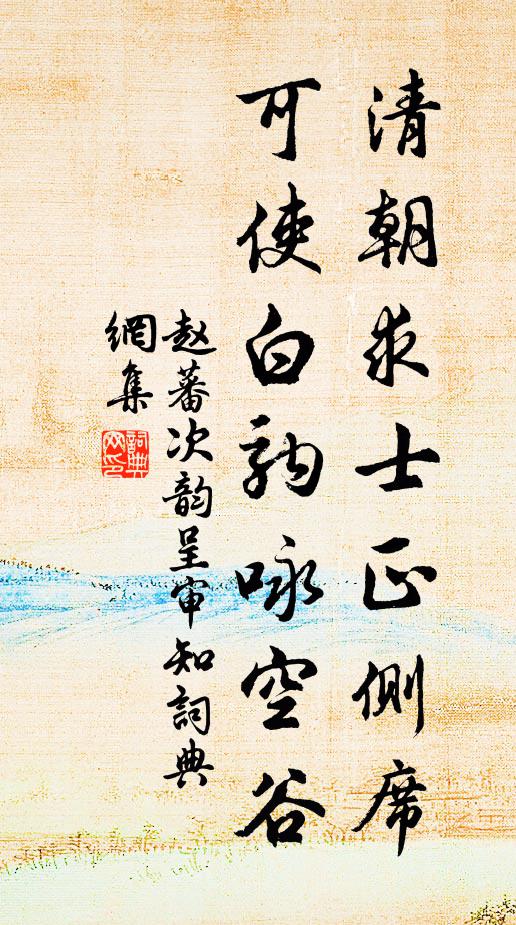 清朝求士正側席
可使白駒咏空谷
赵蕃次韵呈审知詞典
網集
詞典
网印